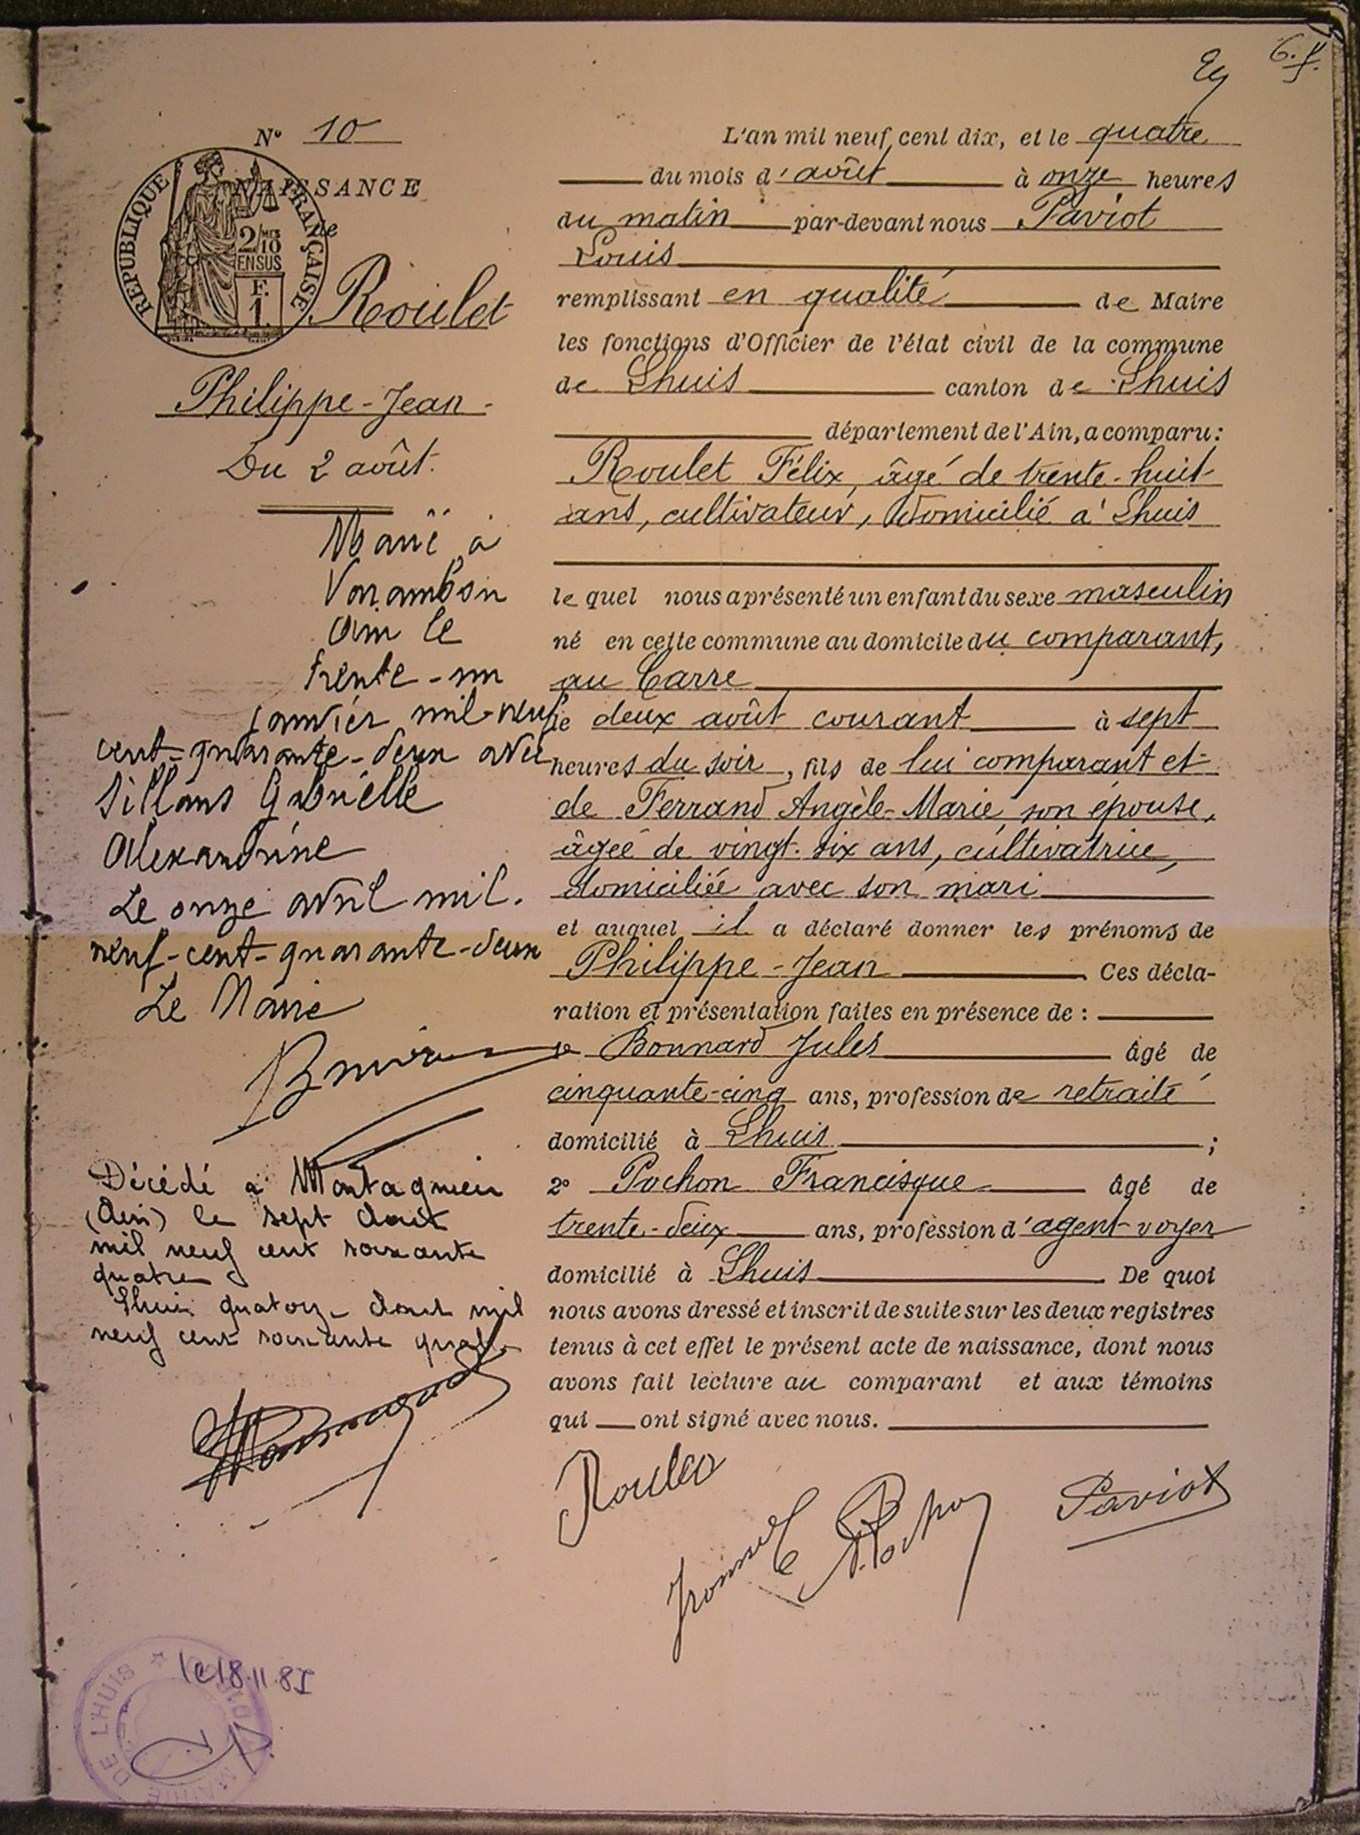 N° 10
NAISSANCE
de
REPUBLIQUE FRANÇAISE
2/10
EN SUS
F.
1.
Roulet
Philippe-Jean
Du 2 août.
Marié à
Varambon
Ain le
trente-un
janvier mil-neuf
cent-quarante-deux avec
Gabrielle
Alexandrine
Le onze avril mil.
neuf-cent-quarante-deux
Le Maire
Décédé à Montagnieu
(Ain) le sept Aout
mil neuf cent soixante
quatre
Lhuis quatorze Aout mil
neuf cent soixante quatre
L'an mil neuf cent dix, et le quatre
du mois d'août à onze heures
du matin par-devant nous Paviot
Louis
remplissant en qualité de Maire
les fonctions d'Officier de l'état civil de la commune
de Lhuis canton de Lhuis
département de l'Ain, a comparu:
Roulet Félix, âgé de trente-huit
ans, cultivateur, domicilié à Lhuis
le quel nous a présenté un enfant du sexe masculin
né en cette commune au domicile du comparant,
au Carre
le deux août courant à sept
heures du soir, fils de lui comparant et
de Ferrand Angèle-Marie, son épouse,
âgée de vingt-six ans, cultivatrice,
domiciliée avec son mari
et auquel il a déclaré donner les prénoms de
Philippe-Jean Ces décla-
ration et présentation faites en présence de :
Bonnard Jules âgé de
cinquante-cinq ans, profession de retraité
domicilié à Lhuis ;
2° Pochon Francisque âgé de
trente-deux ans, profession d'agent-voyer
domicilié à Lhuis De quoi
nous avons dressé et inscrit de suite sur les deux registres
tenus à cet effet le présent acte de naissance, dont nous
avons fait lecture au comparant et aux témoins
qui ont signé avec nous.
Roulet
Pochon
Paviot
le 18.11.81
MAIRIE DE LHUIS